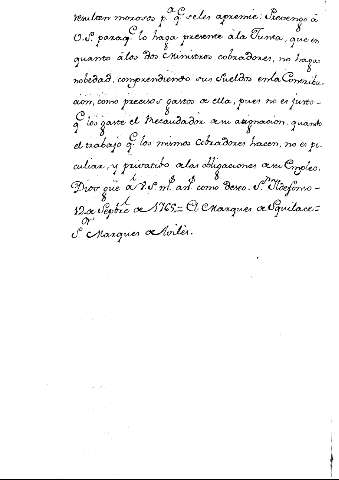 resulten morosos p.ª q.e se les apremie: Prevengo à
V.S. para q.e lo haga presente à la Junta, que en
quanto à los dos Ministros cobradores, no haga
nobedad, comprendiendo sus sueldos en la Contribu-
cion, como precisos gastos de ella, pues no es justo-
q.e los gaste el Recaudador de su asignacion, quando
el trabajo q.e los mismos cobradores hacen, no es pe-
culiar, y privatibo a las obligaciones de su Empleo.
Dios güe à V.S. m.s an.s como deseo. S.n Yldefonso-
12 de Septbre de 1765= El Marques de Squilace=
S.or Marques de Aviles.